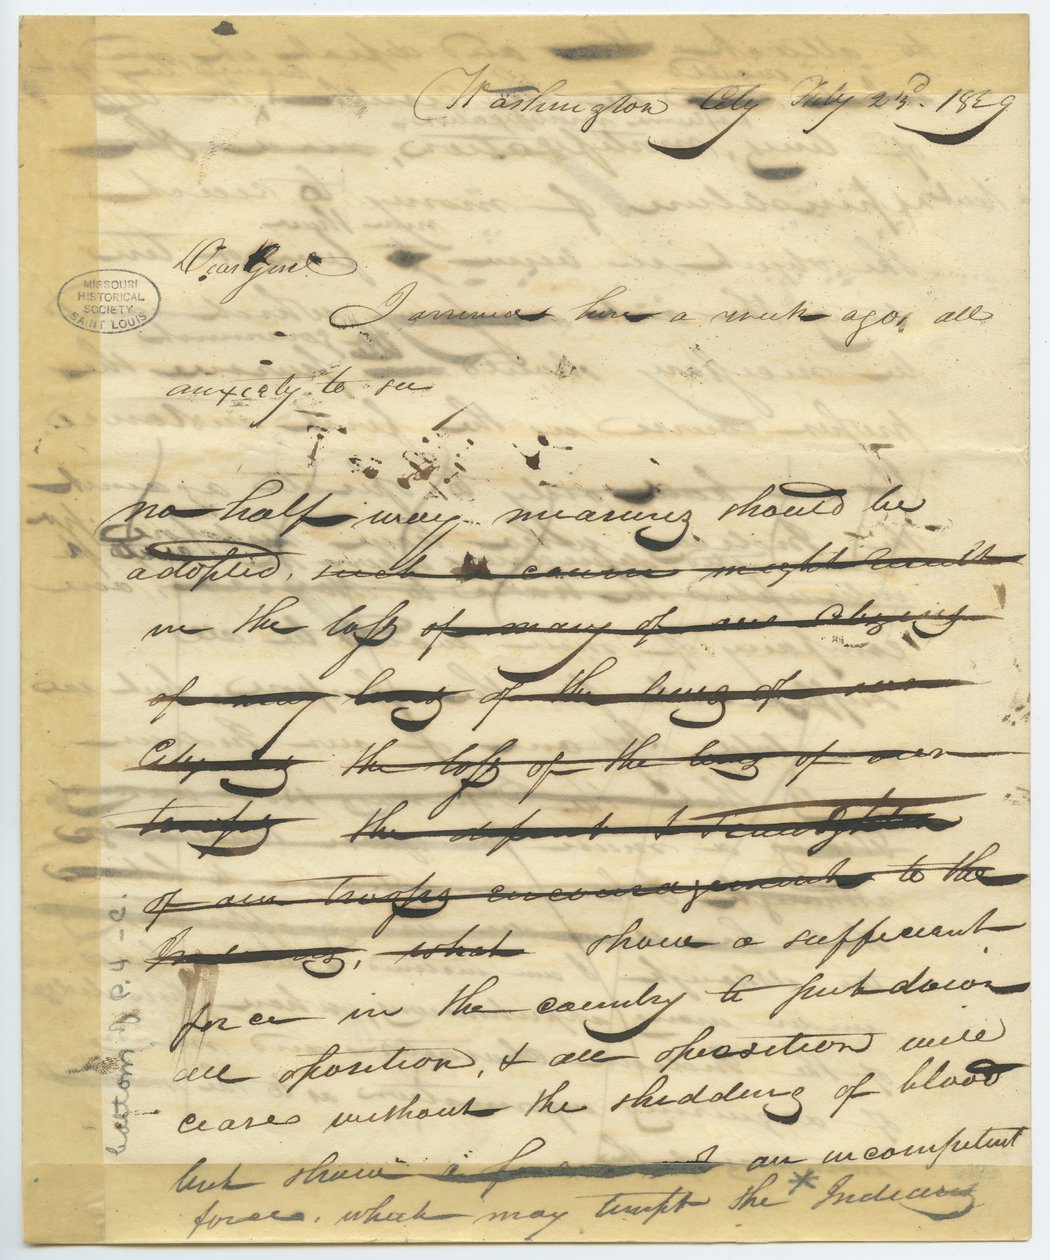 Washington City July 23d. 1839
Dear Genl
MISSOURI
HISTORICAL
SOCIETY
SAINT LOUIS
I arrived here a week ago, all
anxiety to see
no half way measures should be
adopted, such a course might result
in the loss of many of our Citizens
of many lives of the lives of our
Citizens the loss of the lives of our
troops the defeat &
of our troops encouragement to the
Indians, which show a sufficient
force in the country to put down
all oposition, & all oposition will
cease without the shedding of blood
but show a an incompetent
force, which may tempt the * Indians
bottom of p. 4 - C.